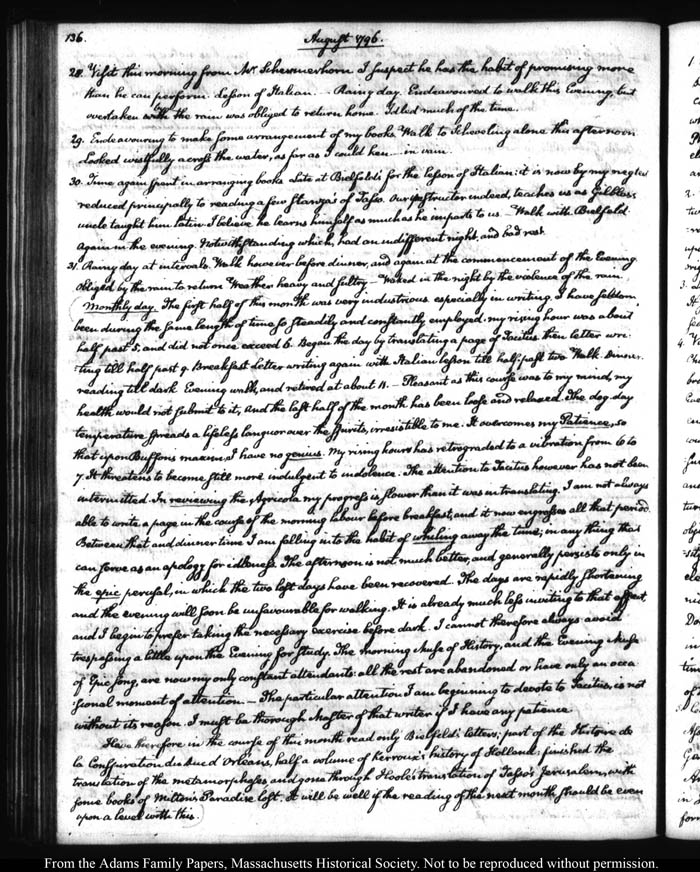 136.
August 1796.
28. Visit this morning from Mr. Schermerhorn. I suspect he has the habit of promising more
than he can perform. Lesson of Italian. — Rainy day. Endeavoured to walk this Evening, but
overtaken with the rain was obliged to return home. Idled much of the time.
29. Endeavouring to make some arrangement of my books. Walk to Scheveling alone this afternoon
Looked wistfully across the water, as far as I could ken — in vain.
30. Time again spent in arranging books. Late at Bielfeld's for the lesson of Italian: it is now by my neglect
reduced principally to reading a few Stanza's of Tasso. Our Instructor indeed, teaches us as Gil blas's
uncle taught him latin. I believe he learns himself as much as he imparts to us. Walk with Bielfeld
again in the evening. Notwithstanding which, had an indifferent night, and bad rest.
31. Rainy day at intervals. Walk however before dinner, and again at the commencement of the Evening
Obliged by the rain to return. Weather heavy and sultry. Waked in the night by the violence of the rain.
Monthly day. The first half of this month was very industrious especially in writing. I have seldom
been during the same length of time so steadily and constantly employed. my rising hour was about
half past 5, and did not once exceed 6. Began the day by translating a page of Tacitus, then letter wri-
ting till half past 9. Breakfast. Letter writing again with Italian lesson till half past two. Walk. Dinner.
reading till dark. Evening walk, and retired at about 11. — Pleasant as this course was to my mind, my
health would not submit to it, And the last half of the month has been loose and relaxed. The dog-day
temperature spreads a lifeless languor over the spirits, irresistible to me. It overcomes my Patience, so
that upon Buffon's maxim, I have no genius. My rising hour has retrograded to a vibration from 6 to
7. It threatens to become still more indulgent to indolence. The attention to Tacitus however has not been
intermitted. In reviewing the Agricola my progress is slower than it was in translating. I am not always
able to write a page in the course of the morning labour before breakfast, and it now engrosses all that period.
Between that and dinner time I am falling into the habit of whiling away the time; in any thing that
can serve as an apology for idleness. The afternoon is not much better, and generally persists only in
the epic perusal, in which the two lost days have been recovered. The days are rapidly shortening
and the evening will soon be unfavourable for walking. It is already much less inviting to that effect
and I begin to prefer taking the necessary exercise before dark. I cannot therefore always avoid
trespassing a little upon the Evening for Study. The morning Muse of History, and the Evening Muse
of Epic song, are now my only constant attendants: all the rest are abandoned or have only an occa
sional moment of attention — The particular attention I am beginning to devote to Tacitus, is not
without its reason. I must be thorough Master of that writer if I have any patience.
Have therefore in the course of this month read only Bielfeld's letters; part of the Histoire de
la Conspiration du Duc d'Orleans, half a volume of Kerroux's history of Holland: finished the
translation of the metamorphoses and gone through Hoole's translation of Tasso's Jerusalem, with
some books of Milton's Paradise lost. It will be well if the reading of the next month should be even
upon a level with this.
From the Adams Family Papers, Massachusetts Historical Society. Not to be reproduced without permission.